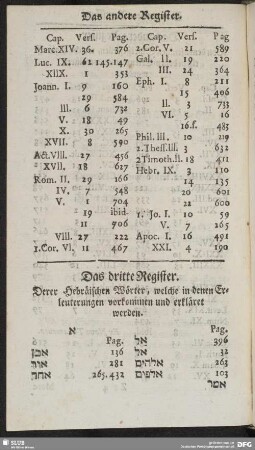 Das andere Register.
Cap. Vers. Pag.
Marc. XIV. 36. 376
Luc. IX. 62 145.147
XIIX. 1 353
Joann. I. 9 160
29 584
III. 6 732
V. 18 49
X. 30 265
XVII. 8 590
Act. VIII. 27 456
XVII. 18 627
Rom. II. 29 166
IV. 7 548
V. 1 704
19 ibid.
11 906
VIII. 27 222
1. Cor. VI. 11 467
Cap. Vers. Pag
2. Cor. V. 21 589
Gal. II. 19 220
III. 24 364
Eph. I. 8 211
15 406
II. 3 733
VI. 5 16
16.s. 485
Phil. III. 10 219
2. Thess. III. 3 632
2 Timoth. II. 18 411
Hebr. IX. 3 110
14 135
20 601
22 600
1. Jo. I. 10 59
V. 7 265
Apoc. I. 16 491
XXI. 4 190
Das dritte Register.
Derer Hebräischen Wörter, welche in denen Er-
leuterungen vorkommen und erkläret
werden.
א
Pag.
אבן 136
אור 281
אחד 265.432
Pag.
אל 396
אל 32
אלהים 263
אלפים 103
אמר